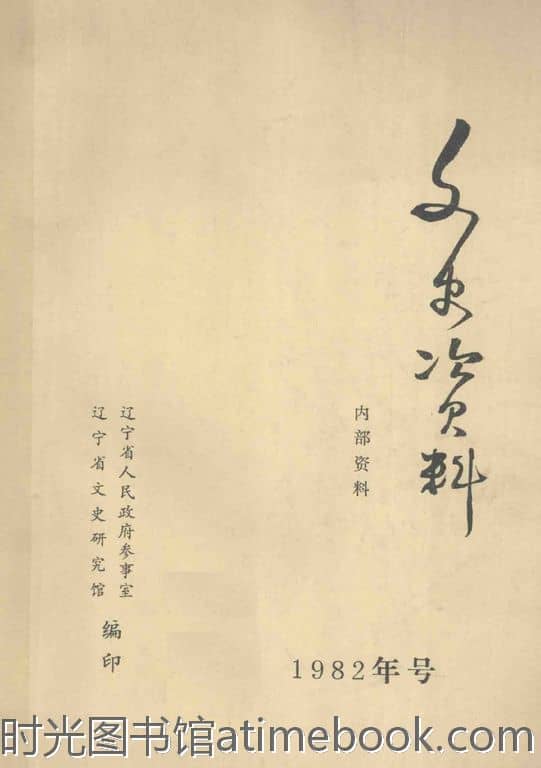 文史资料
内部资料
辽宁省人民政府参事室
辽宁省文史研究馆
编印
1982年号
时光图书馆atimebook.com